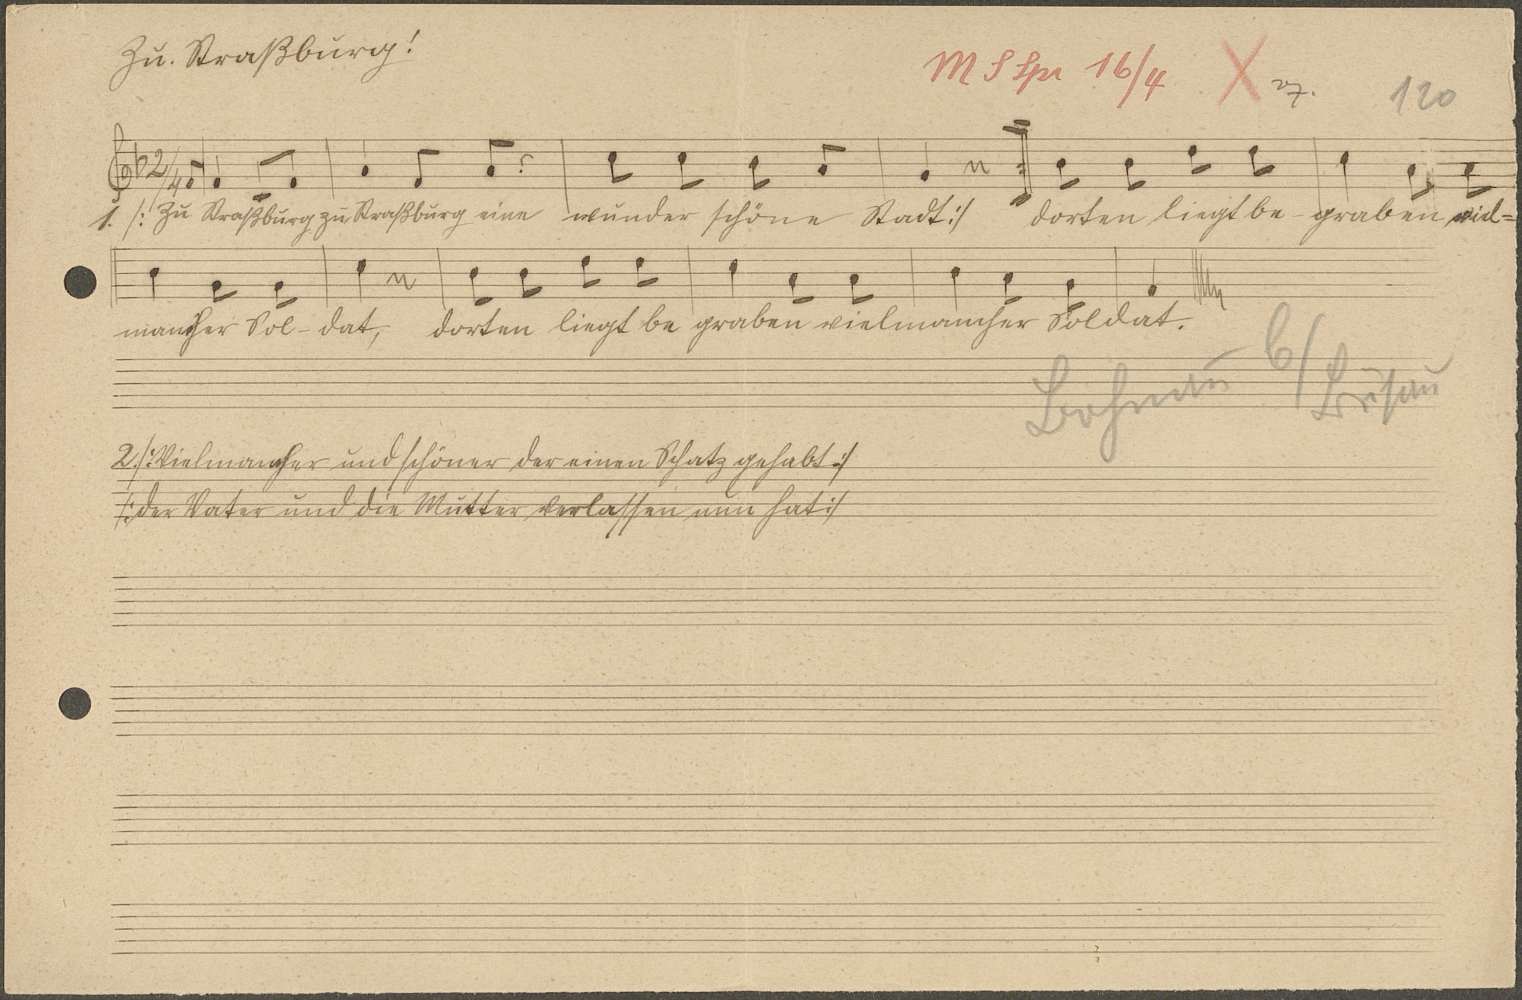 Zu. Straßburg!
M S Spr 16/4 X
120
2/4
1. /: Zu Straßburg zu Straßburg eine wunder schöne Stadt :/ dorten liegt be-graben viel=
mancher Sol-dat, dorten liegt be graben vielmancher Soldat.
2. /: Vielmancher und schöner der einen Schatz gehabt :/
/: der Vater und die Mutter verlassen nun hat :/